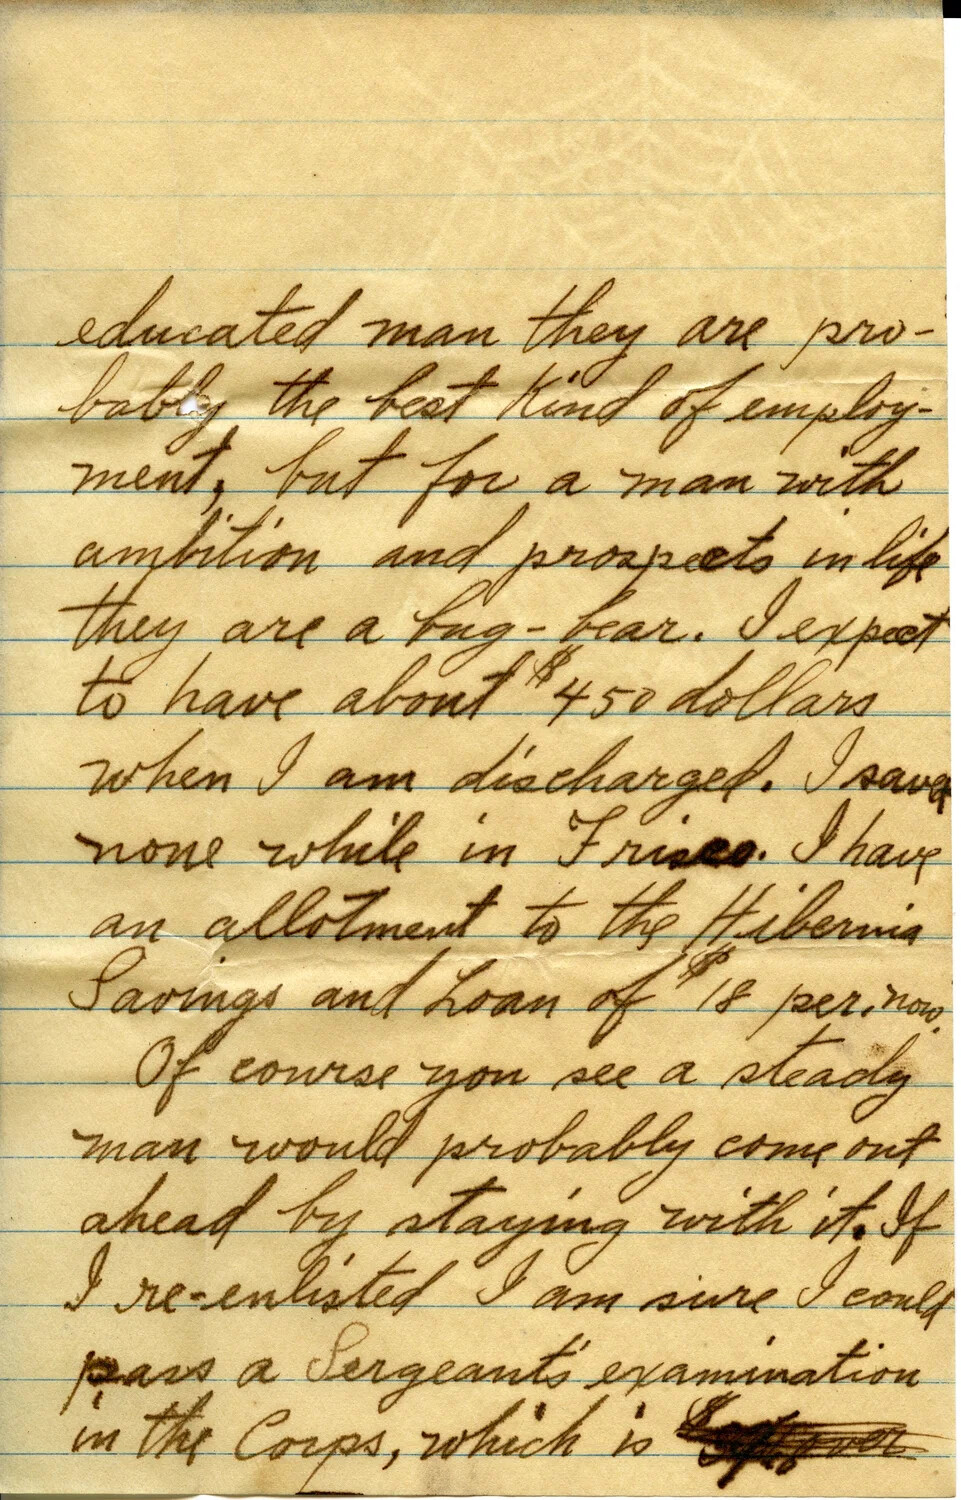 educated man they are pro-
bably the best kind of employ-
ment, but for a man with
ambition and prospects in life
they are a bug-bear. I expect
to have about $450 dollars
when I am discharged. I saved
none while in Frisco. I have
an allotment to the Hibernia
Savings and Loan of $18 per. now.
Of course you see a steady
man would probably come out
ahead by staying with it. If
I re-enlisted I am sure I could
pass a Sergeant's examination
in the Corps, which is